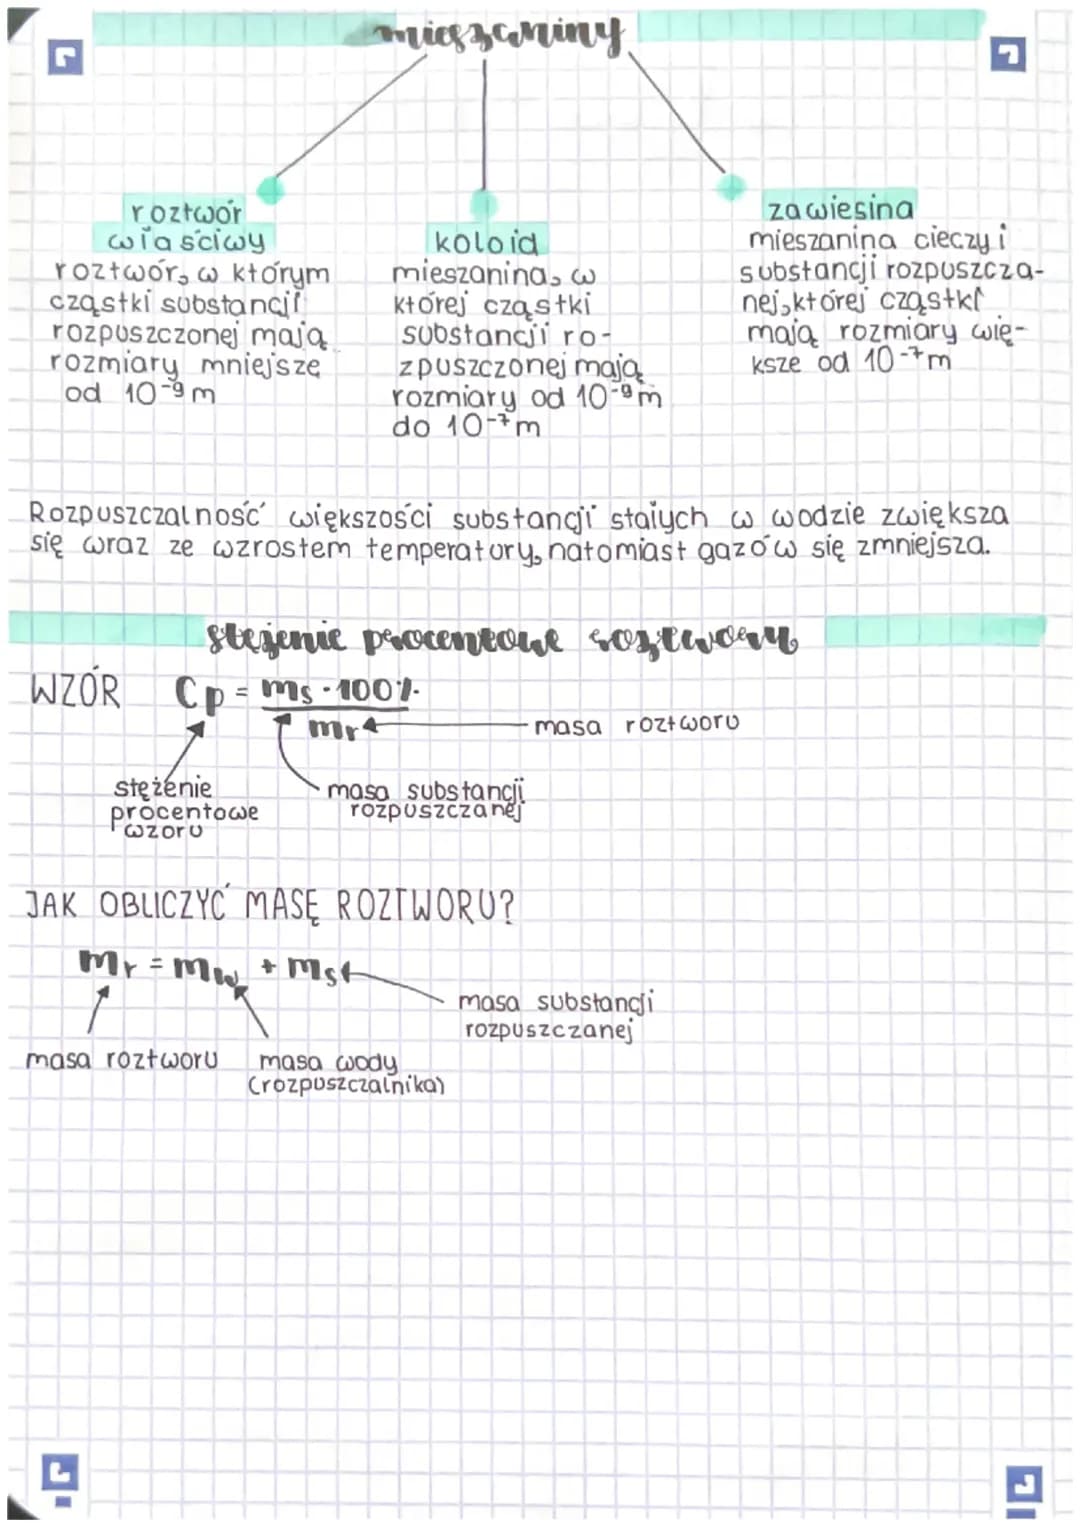 mieszaniny
roztwór
właściwy
roztwór, w którym
cząstki substancji
rozpuszczonej mają
rozmiary mniejsze
od 10⁻⁹ m
koloid
mieszanina, w
której cząstki
substancji ro-
zpuszczonej mają
rozmiary od 10⁻⁹ m
do 10⁻⁷ m
zawiesina
mieszanina cieczy i
substancji rozpuszcza-
nej, której cząstki
mają rozmiary wię-
ksze od 10⁻⁷ m
Rozpuszczalność większości substancji stałych w wodzie zwiększa
się wraz ze wzrostem temperatury, natomiast gazów się zmniejsza.
stężenie procentowe roztworu
WZÓR Cp = ms · 100%
mr
masa roztworu
stężenie
procentowe
wzoru
masa substancji
rozpuszczanej
JAK OBLICZYĆ MASĘ ROZTWORU?
mr = mw + ms
masa substancji
rozpuszczanej
masa roztworu
masa wody
(rozpuszczalnika)